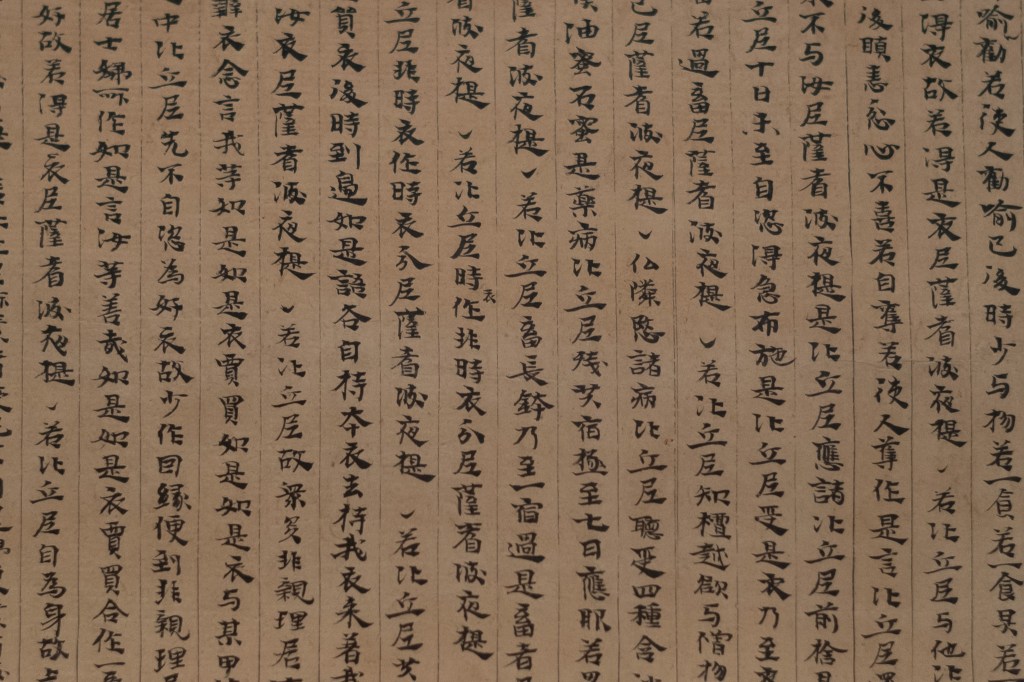 喻勸若使人勸喻已後時少与物若一食若一食具若
得衣故若得是衣尼薩耆波夜提 若比丘尼与他比
後瞋恚忿心不喜若自奪若使人奪作是言比丘尼
不与汝尼薩耆波夜提是比丘尼應諸比丘尼前捨
丘尼十日未至自恣得急布施是比丘尼受是衣乃至
畜若過畜尼薩耆波夜提 若比丘尼知檀越欲与僧物
已尼薩耆波夜提 仏憐愍諸病比丘尼聽受四種含
油蜜石蜜是藥病比丘尼殘共宿極至七日應服若
薩耆波夜提 若比丘尼畜長鉢乃至一宿過是畜者
者波夜提 若比丘尼時衣作非時衣分尼薩耆波夜提
丘尼非時衣作時衣分尼薩耆波夜提 若比丘尼共
貿衣後時到邊如是語各自持本衣去持我衣来著我
汝衣尼薩耆波夜提 若比丘尼故非親理居
辦衣念言我等如是如是衣賈買如是如是衣与某甲
中比丘尼先不自恣為好衣故少作因緣便到非親理
居士婦所作如是言汝等善哉如是如是衣賈買合作一
好故若得是衣尼薩耆波夜提 若比丘尼自為身故